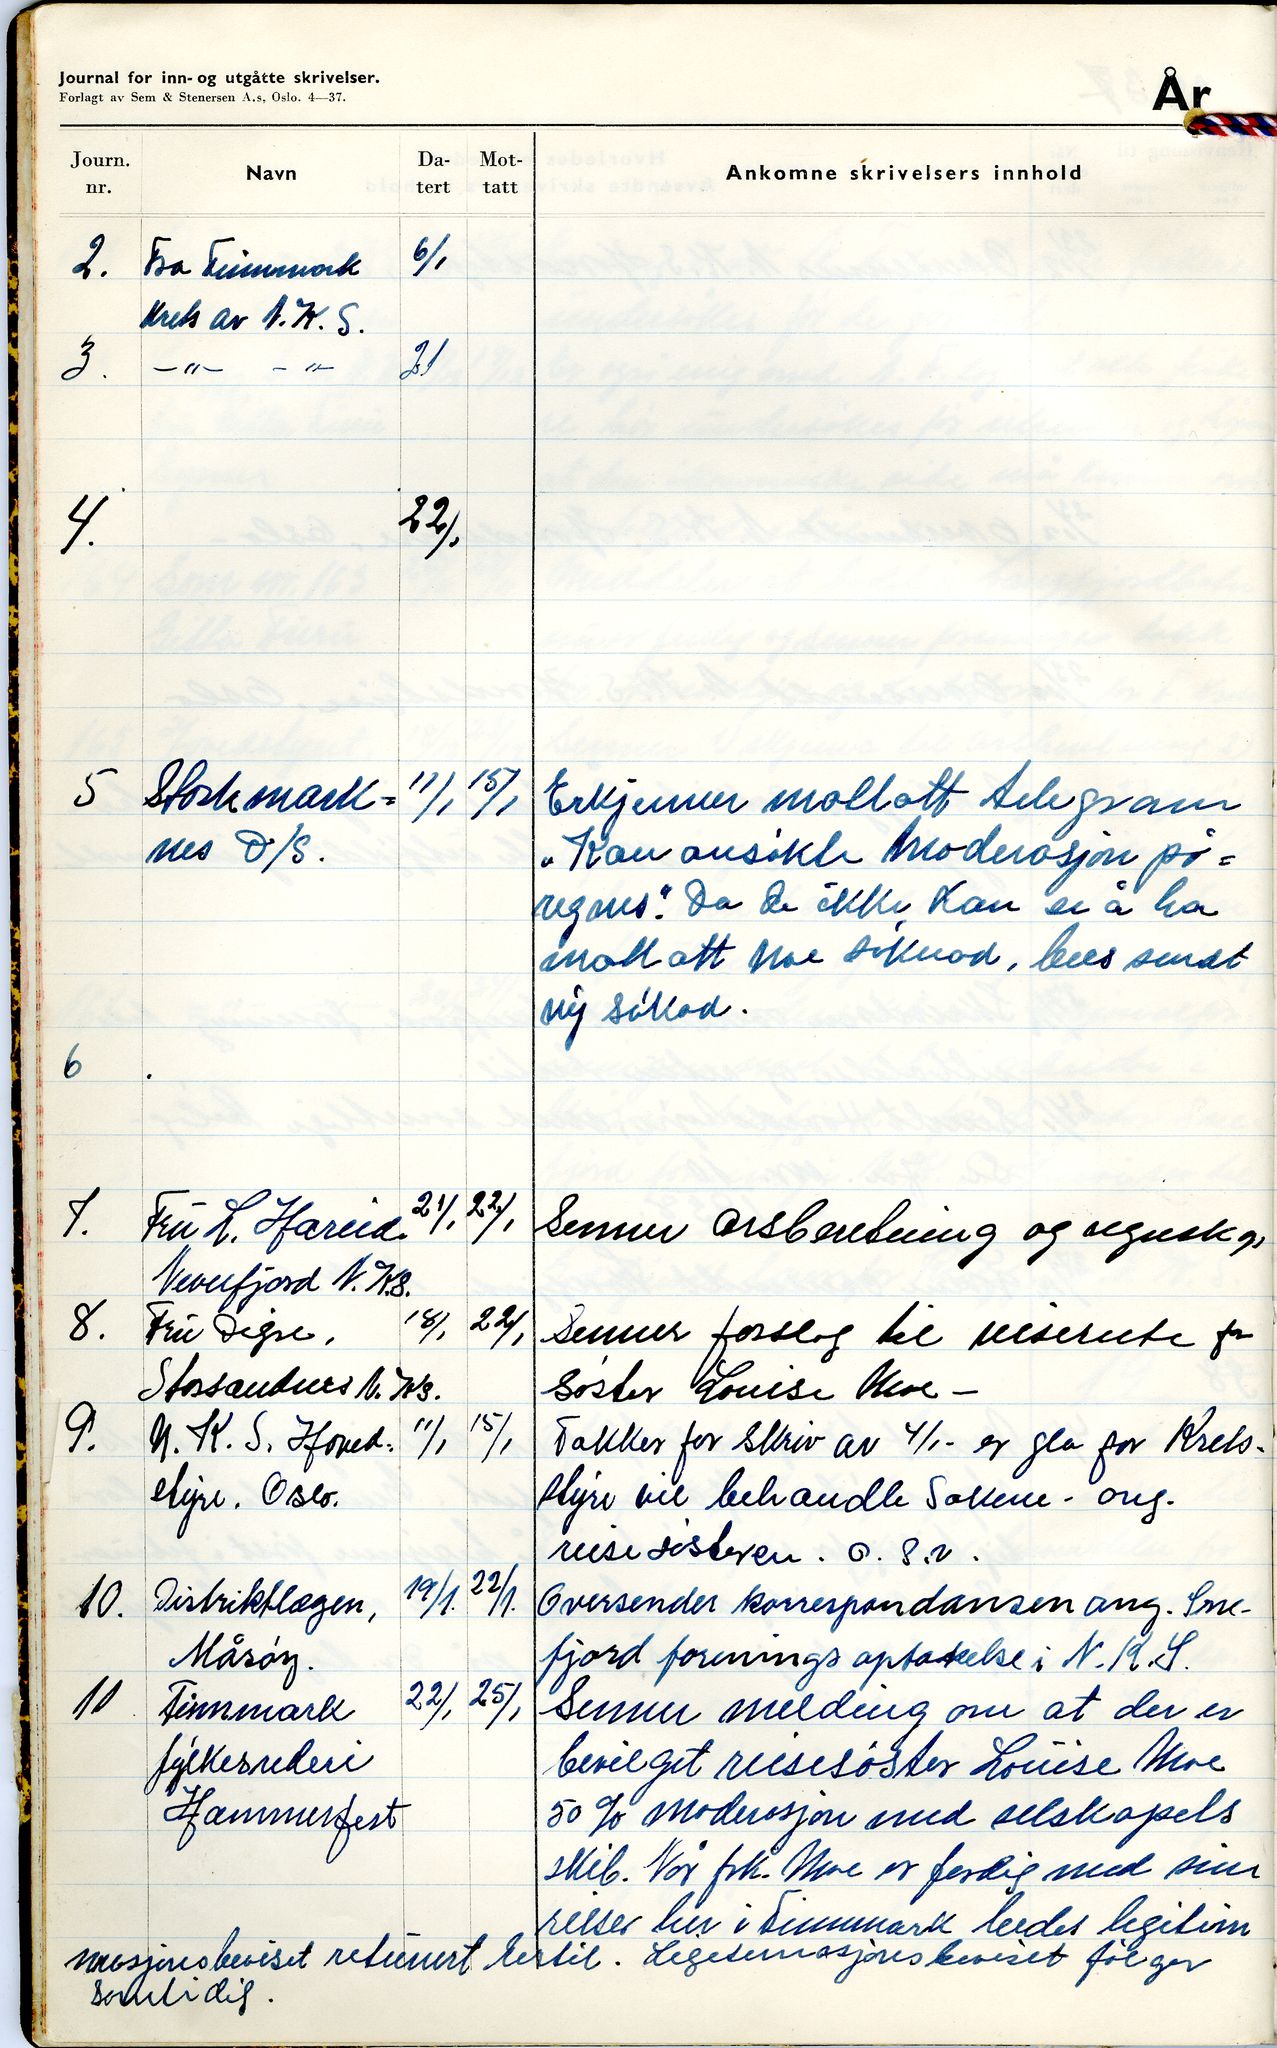 Journal for inn- og utgåtte skrivelser.
Forlagt av Sem & Stenersen A.s, Oslo. 4—37.
År
Journ. nr. Navn Da-tert Mot-tatt Ankomne skrivelsers innhold
2. Fra Finnmark 6/1
Krets av N.K.S.
3. —"— —"— 21
4. 22/1
5 Stokmark= 11/1 15/1 Erkjenner mottatt telegram
nes D/S. "Kan ansökte moderasjon på=
regnes". Da de ikke kan se å ha
mottatt noe söknad, bees sendt
ny sökad.
6 .
7. Fru L. Hareid. 21/1 22/1 Senner årsberetning og regnskap
Neverfjord N.K.S.
8. Fru Digre, 18/1 22/1 Senner forslag til reiserute for
Storsandnes N.K.S. söster Louise Moe —
9. N.K.S. Hoved- 11/1 15/1 Takker for skriv av 4/1 - er gla for Krets-
styre. Oslo. styre vil behandle sakene - ang.
reisesösteren. o.s.v.
10. Distriktlægen, 19/1. 22/1. Oversender korrespondansen ang. Sne-
Måsöy. fjord forenings optakelse i N.K.S.
11 Finnmark 22/1 25/1 Senner melding om at der er
fylkesrederi bevilget reisesöster Louise Moe
Hammerfest 50% moderasjon med selskapets
skib. Når frk. Moe er ferdig med sine
reiser her i Finnmark bedes legitim
masjonsbeviset returnert hertil. Legitimasjonsbeviset fölger
samtidig.